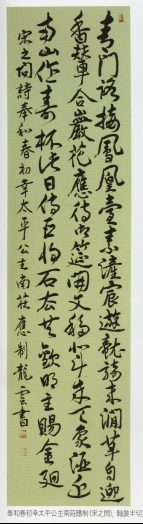 青門路接鳳凰臺素滻宸遊龍騎來澗草自迎
香輦合巖花應待御筵開文移北斗成天象酒遞
南山作壽杯此日侍臣將石去共歡明主賜金迴
宋之問詩奉和春初幸太平公主南莊應制 龍雲書
奉和春初幸太平公主南莊應制(宋之問),軸裝半切